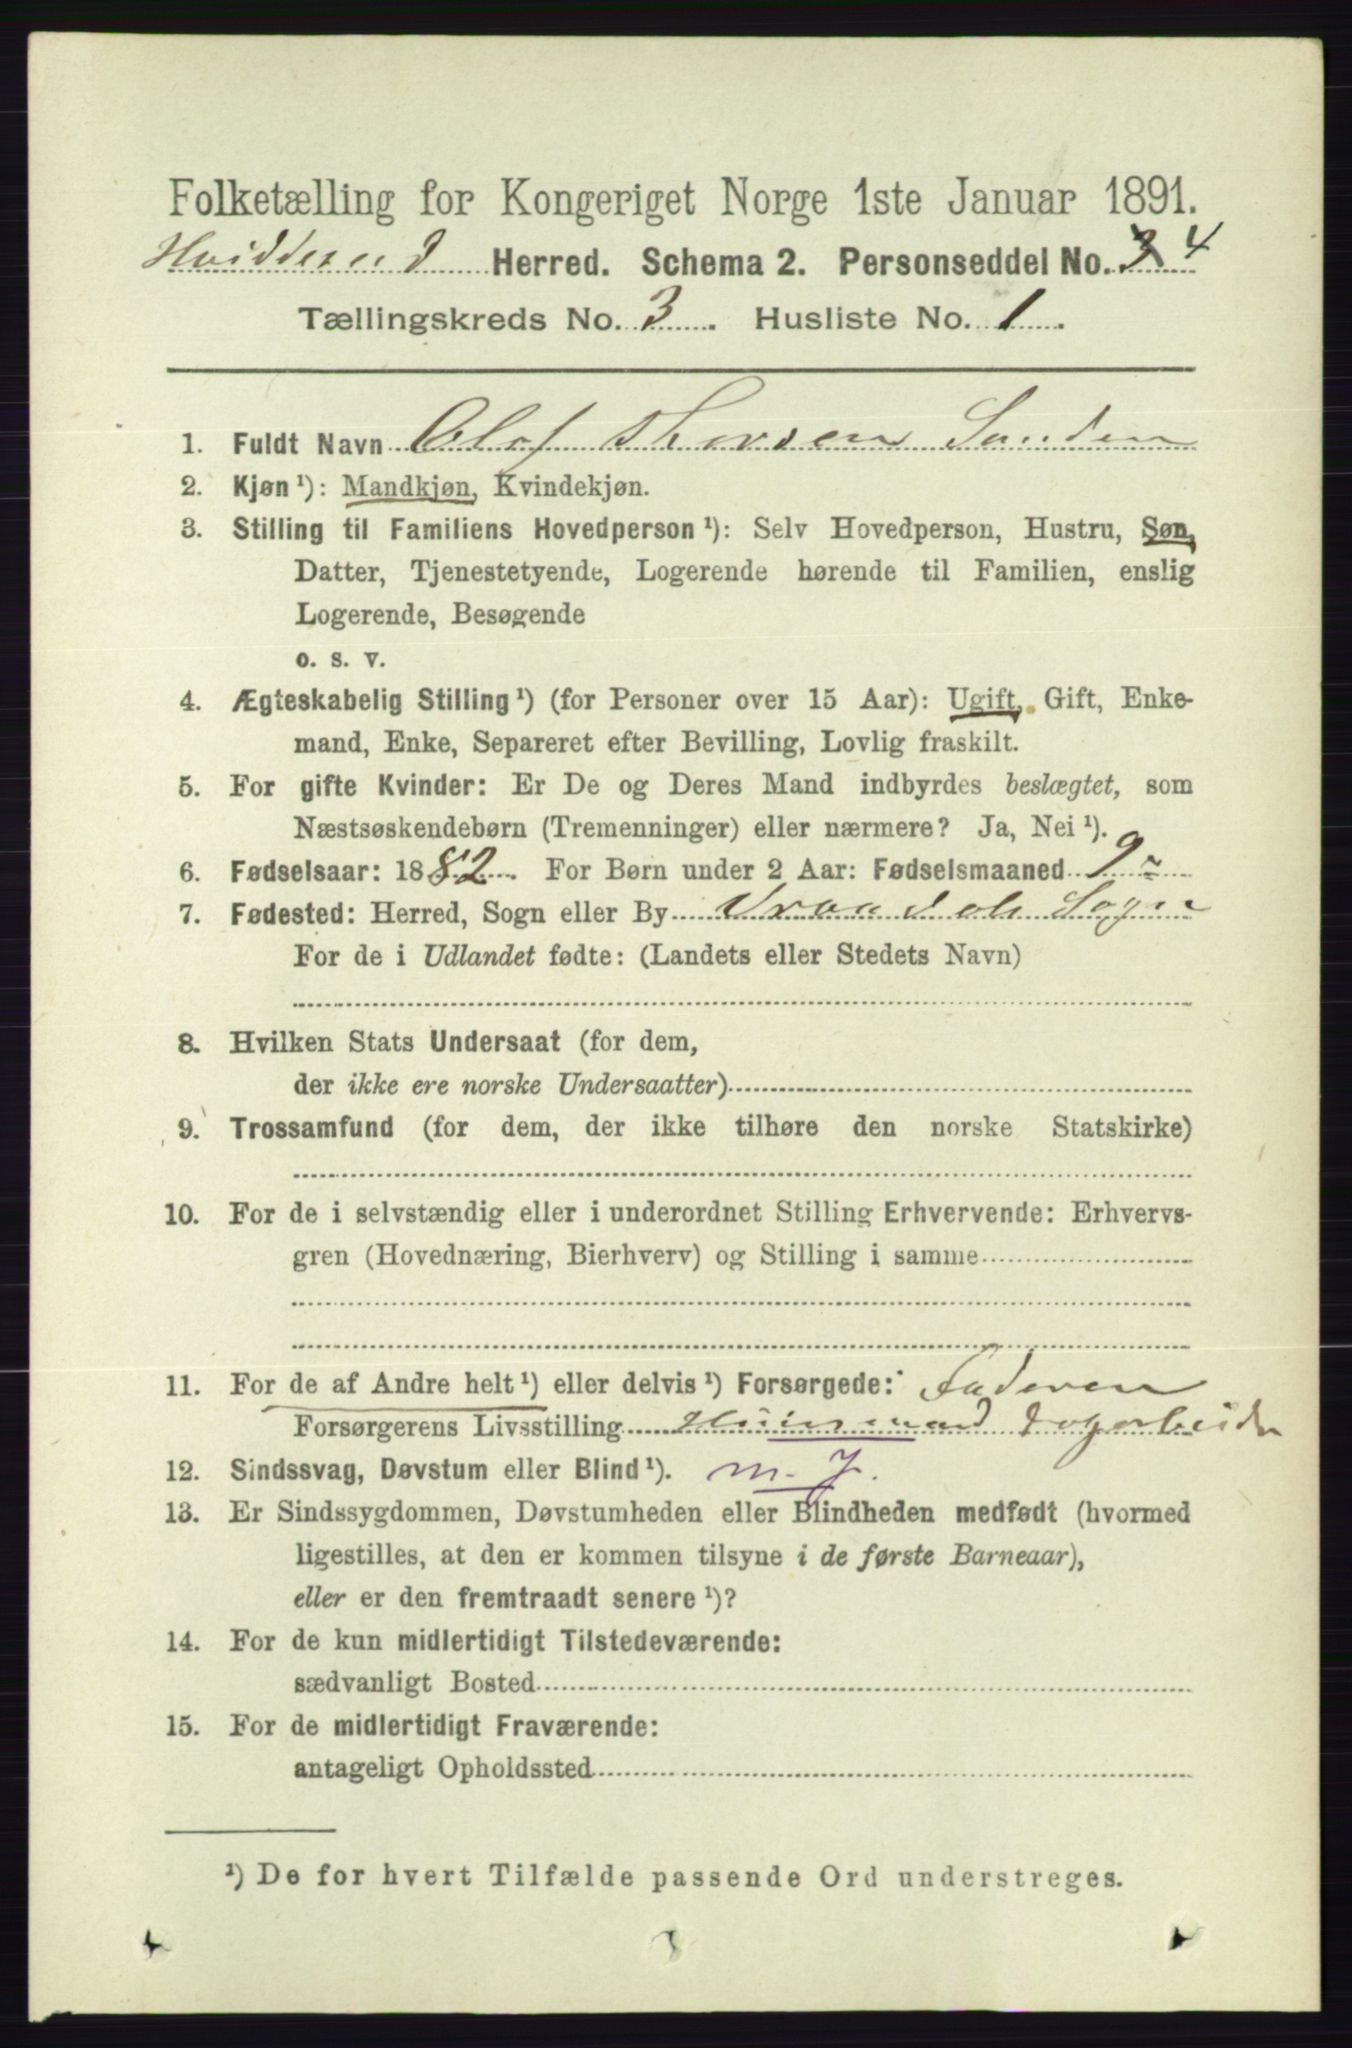 Folketælling for Kongeriget Norge 1ste Januar 1891.
Hvideseid Herred. Schema 2. Personseddel No. 3 4
Tællingskreds No. 3. Husliste No. 1.
1. Fuldt Navn Olaf Thorsen Sanden
2. Kjøn ¹): Mandkjøn, Kvindekjøn.
3. Stilling til Familiens Hovedperson ¹): Selv Hovedperson, Hustru, Søn,
Datter, Tjenestetyende, Logerende hørende til Familien, enslig
Logerende, Besøgende
o. s. v.
4. Ægteskabelig Stilling ¹) (for Personer over 15 Aar): Ugift, Gift, Enke-
mand, Enke, Separeret efter Bevilling, Lovlig fraskilt.
5. For gifte Kvinder: Er De og Deres Mand indbyrdes beslægtet, som
Næstsøskendebørn (Tremenninger) eller nærmere? Ja, Nei ¹).
6. Fødselsaar: 1882. For Børn under 2 Aar: Fødselsmaaned 9
7. Fødested: Herred, Sogn eller By Vraadals Sogn
For de i Udlandet fødte: (Landets eller Stedets Navn)
8. Hvilken Stats Undersaat (for dem,
der ikke ere norske Undersaatter)
9. Trossamfund (for dem, der ikke tilhøre den norske Statskirke)
10. For de i selvstændig eller i underordnet Stilling Erhvervende: Erhvervs-
gren (Hovednæring, Bierhverv) og Stilling i samme
11. For de af Andre helt ¹) eller delvis ¹) Forsørgede: Faderen
Forsørgerens Livsstilling Huusmand Dagarbeider
12. Sindssvag, Døvstum eller Blind ¹). m. J.
13. Er Sindssygdommen, Døvstumheden eller Blindheden medfødt (hvormed
ligestilles, at den er kommen tilsyne i de første Barneaar),
eller er den fremtraadt senere ¹)?
14. For de kun midlertidigt Tilstedeværende:
sædvanligt Bosted
15. For de midlertidigt Fraværende:
antageligt Opholdssted
¹) De for hvert Tilfælde passende Ord understreges.